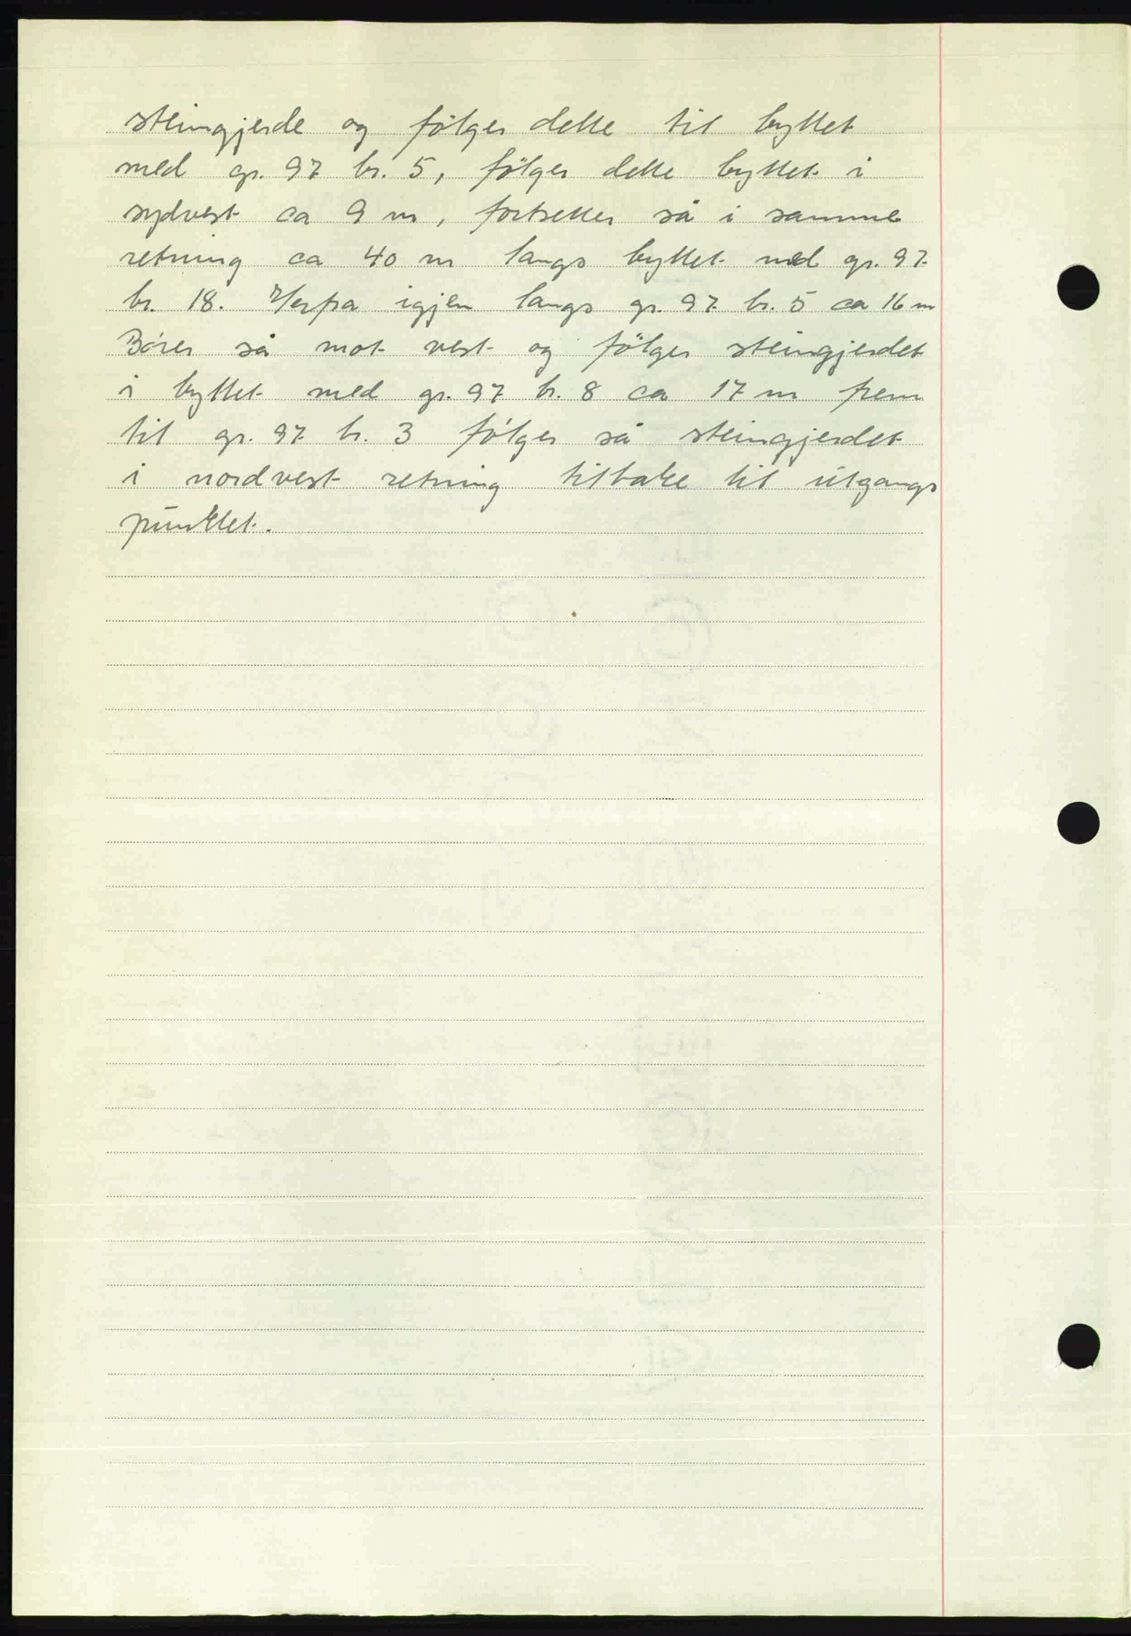 steingjerde og følger dette til byttet
med gr. 97 br. 5, følger dette byttet i
sydvest ca 9 m, fortsetter så i samme
retning ca 40 m langs byttet med gr. 97
br. 18. Herfra igjen langs gr. 97 br. 5 ca 16 m
Bøier så mot vest og følger steingjerdet
i byttet med gr. 97 br. 8 ca 17 m frem
til gr. 97 br. 3 følger så steingjerdet
i nordvest retning tilbake til utgangs
punktet.